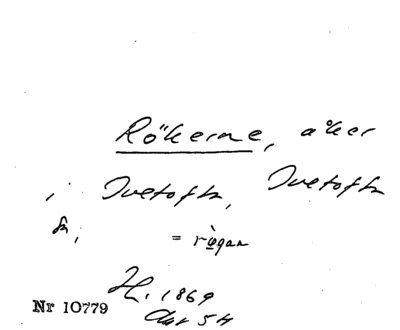 Rökerne, åker
i Ivetofta, Ivetofta
sn,
= rø̀gan
H. 1869
Nr 10779